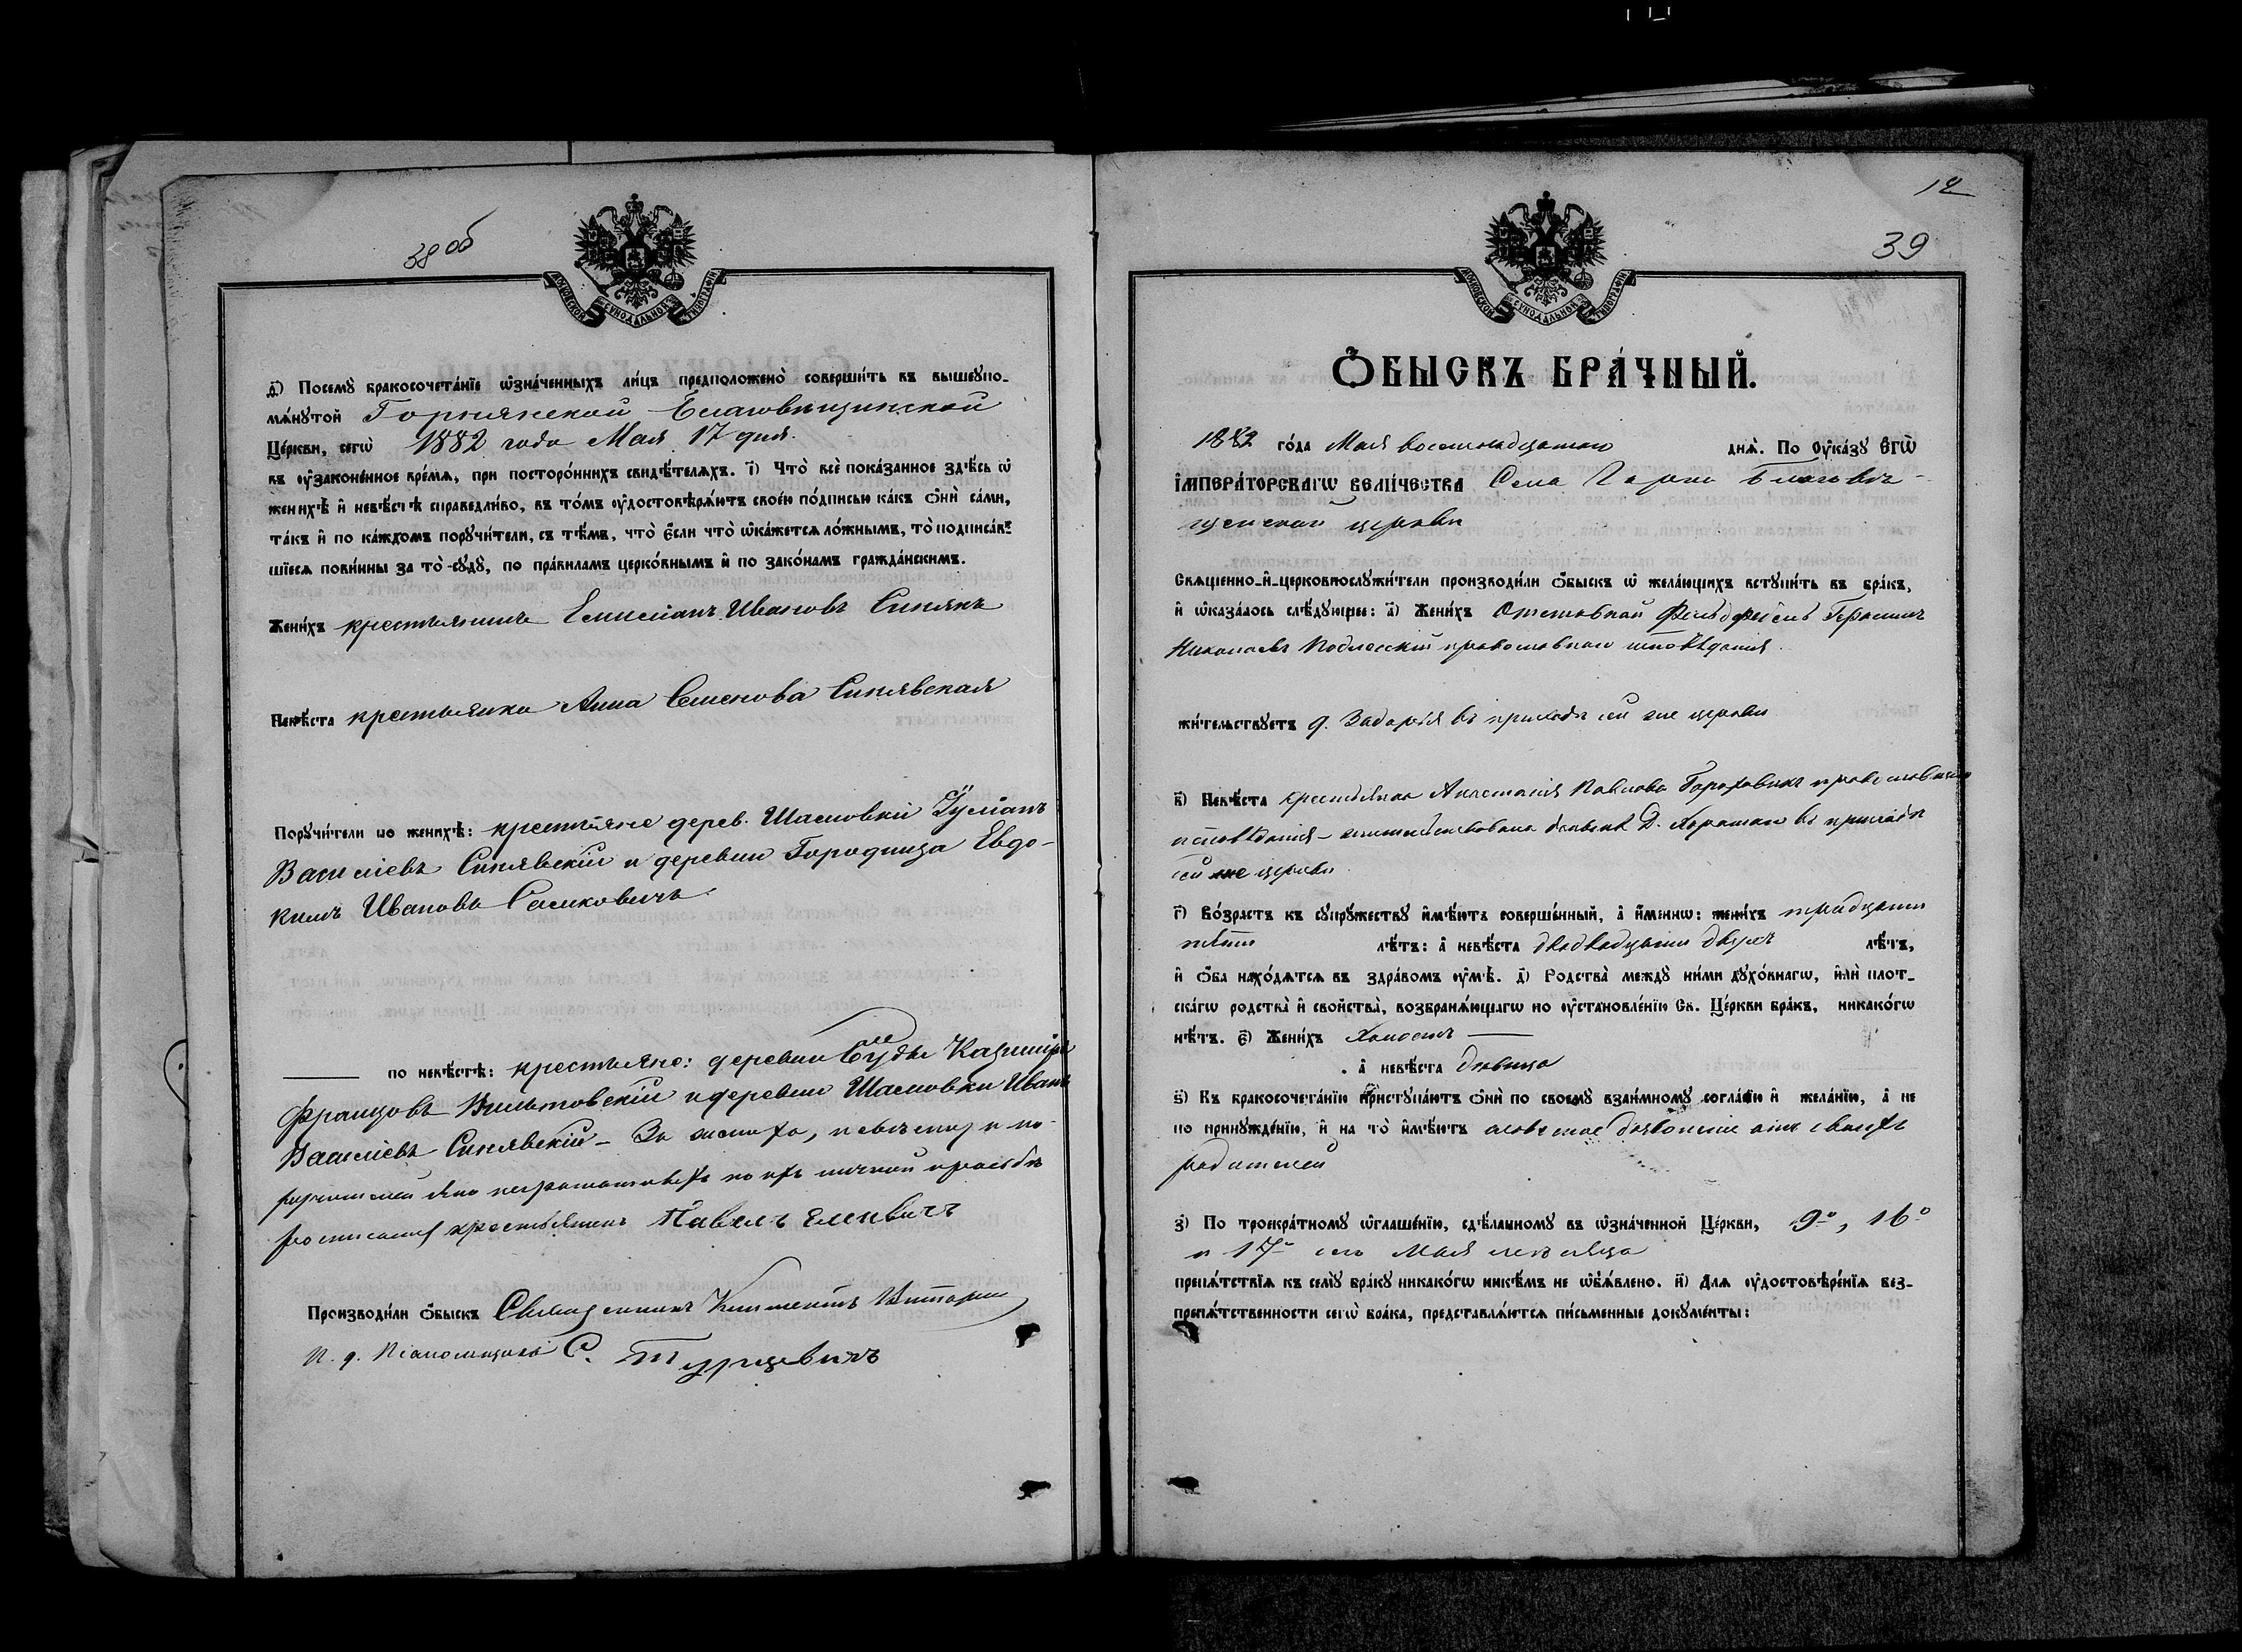 38 об
МОСКОВСКОЙ СѴНОДАЛЬНОЙ ТИПОГРАФІИ
д҃) Посемꙋ̀ бракосочета́нїе ѡ҆зна́ченныхъ ли́цъ предположено̀ соверши́ть въ вышеꙋпо-
мѧ́нꙋтой Горнянской Благовѣщенской
Це́ркви, сегѡ̀ 1882 года Мая 17 дня.
въ ᲂу҆зако́ненное вре́мѧ, при посторо́ннихъ свидѣ́телѧхъ. і҃) Что̀ всѐ пока́занное здѣ́сь ѡ҆
женихѣ̀ и҆ невѣ́стѣ справедли́во, въ то́мъ ᲂу҆достовѣрѧ́ютъ свое́ю по́дписью ка́къ ѻ҆нѝ са́ми,
та́къ и҆ по ка́ждомъ порꙋчи́тели, съ тѣ́мъ, что̀ є҆́сли что̀ ѡ҆ка́жетсѧ ло́жнымъ, то̀ подписа́в-
шїесѧ пови́нны за то̀ сꙋдꙋ̀, по пра́виламъ церко́внымъ и҆ по зако́намъ гражда́нскимъ.
Жени́хъ крестьянинъ Емиліанъ Ивановъ Синякъ
Невѣ́ста крестьянка Анна Семенова Синявская
Порꙋчи́тели по женихѣ̀: крестьяне дерев. Шаловки Іуліанъ
Василіевъ Синявскій и деревни Городища Евдо-
кимъ Ивановъ Саликовичъ.
по невѣ́стѣ: крестьяне: деревни Буды Казиміръ
Францовъ Вильтовскій и деревни Шаловки Иванъ
Василіевъ Синявскій – За жениха, невѣсту и по-
ручителей яко неграмотныхъ по ихъ личной просьбѣ
росписался крестьянинъ Павелъ Еленвичъ
Производи́ли ѻ҆́быскъ Священникъ Климентъ
И. д. Псаломщика С. Турцевичъ
12
39
МОСКОВСКОЙ СѴНОДАЛЬНОЙ ТИПОГРАФІИ
Ѻ҆́БЫСКЪ БРА́ЧНЫЙ.
1882 го́да Мая восемнадцатаго днѧ̀. По ᲂу҆ка́зꙋ Е҆гѡ̀
І҆мпера́торскагѡ Вели́чества Села Горна Благовѣ-
щенской церкви
Свѧщенно-и҆-церковнослꙋжи́тели производи́ли ѻ҆́быскъ ѡ҆ жела́ющихъ встꙋпи́ть въ бра́къ,
и҆ ѡ҆каза́лось слѣ́дꙋющее: а҃) Жени́хъ Отставной Фельдфебель Герасимъ
Николаевъ Подлесскій православнаго исповѣданія.
жи́тельствꙋетъ д. Задорья въ приходѣ сей же церкви
в҃) Невѣ́ста крестьянка Анастасія Павлова Гороховикъ православнаго
исповѣданія – жительствовала донынѣ Д. Хорошки въ приходѣ
сей же церкви
г҃) Во́зрастъ къ сꙋпрꙋ́жествꙋ и҆мѣ́ютъ соверше́нный, а҆ и҆́меннѡ: жени́хъ тридцати
пяти лѣ́тъ: а҆ невѣ́ста двадцати двухъ лѣ́тъ,
и҆ ѻ҆́ба нахо́дѧтсѧ въ здра́вомъ ᲂу҆мѣ̀. д҃) Родства̀ междꙋ̀ ни́ми дꙋхо́внагѡ, и҆лѝ плот-
ска́гѡ родства̀ и҆ свойства̀, возбранѧ́ющагѡ по ᲂу҆становле́нїю Св. Це́ркви бра́къ, никако́гѡ
нѣ́тъ. є҃) Жени́хъ холостъ
а҆ невѣ́ста дѣвица
ѕ҃) Къ бракосочета́нїю пристꙋпа́ютъ ѻ҆нѝ по своемꙋ̀ взаи́мномꙋ согла́сїю и҆ жела́нїю, а҆ не
по принꙋжде́нїю, и҆ на то̀ и҆мѣ́ютъ словесное дозволеніе отъ своихъ
родителей
з҃) По троекра́тномꙋ ѡ҆глаше́нїю, сдѣ́ланномꙋ въ ѡ҆зна́ченной Це́ркви, 9º, 16º
и 17º сего Мая мѣсяца
препѧ́тствїѧ къ семꙋ̀ бра́кꙋ никако́гѡ никѣ́мъ не ѡ҆б̾ѧ́влено. и҃) Длѧ ᲂу҆достовѣре́нїѧ без-
препѧ́тственности сегѡ̀ бра́ка, представлѧ́ютсѧ пи́сьменные докꙋме́нты: